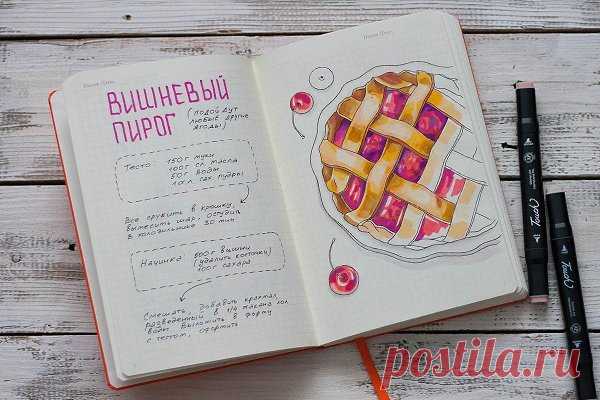 ВИШНЕВЫЙ
ПИРОГ
(ПОДОЙДУТ
ЛЮБЫЕ ДРУГИЕ
ЯГОДЫ)
ТЕСТО: 150Г МУКИ
100Г СЛ. МАСЛА
50Г ВОДЫ
1СТ.Л САХ. ПУДРЫ
ВСЕ СРУБИТЬ В КРОШКУ,
ВЫМЕСИТЬ ШАР, ОСТУДИТЬ
В ХОЛОДИЛЬНИКЕ 30 МИН
НАЧИНКА: 500Г ВИШНИ
(УДАЛИТЬ КОСТОЧКИ)
100Г САХАРА
СМЕШАТЬ, ДОБАВИТЬ КРАХМАЛ,
РАЗВЕДЕННЫЙ В 1/4 СТАКАНА ХОЛ.
ВОДЫ. ВЫЛОЖИТЬ В ФОРМУ
С ТЕСТОМ, ОФОРМИТЬ
Touch
Touch
postila.ru